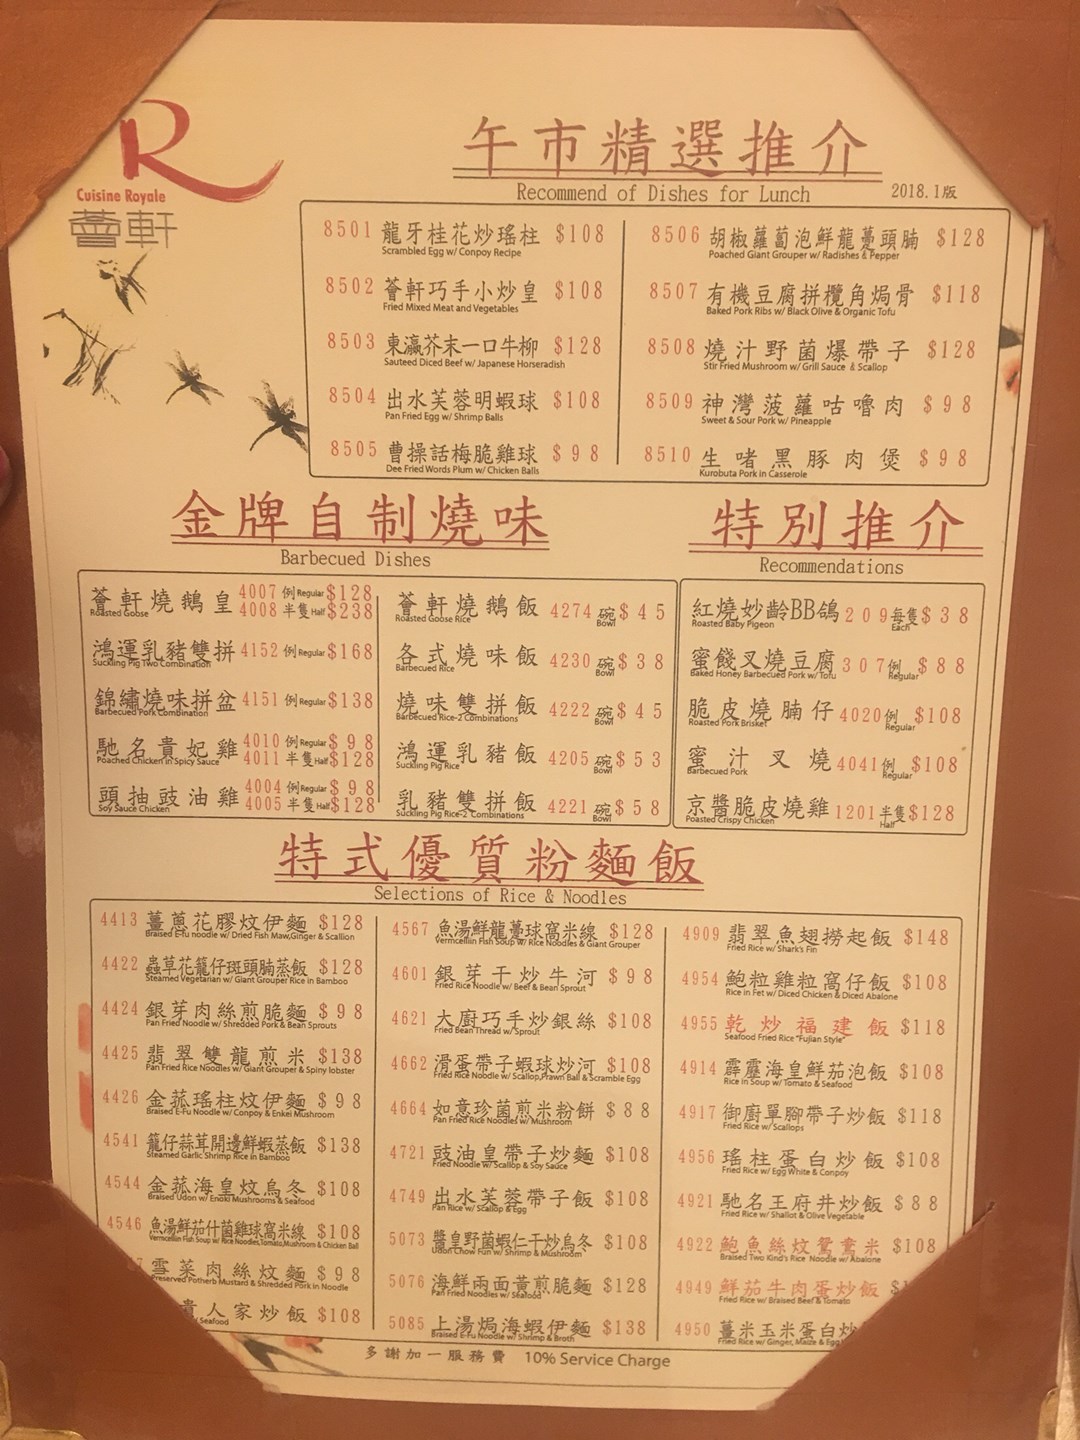 R
Cuisine Royale
薈軒
午市精選推介
Recommend of Dishes for Lunch
2018.1版
8501 龍牙桂花炒瑤柱 $108
Scrambled Egg w/ Conpoy Recipe
8502 薈軒巧手小炒皇 $108
Fried Mixed Meat and Vegetables
8503 東瀛芥末一口牛柳 $128
Sauteed Diced Beef w/ Japanese Horseradish
8504 出水芙蓉明蝦球 $108
Pan Fried Egg w/ Shrimp Balls
8505 曹操話梅脆雞球 $98
Dee Fried Words Plum w/ Chicken Balls
8506 胡椒蘿蔔泡鮮龍躉頭腩 $128
Poached Giant Grouper w/ Radishes & Pepper
8507 有機豆腐拼欖角焗骨 $118
Baked Pork Ribs w/ Black Olive & Organic Tofu
8508 燒汁野菌爆帶子 $128
Stir Fried Mushroom w/ Grill Sauce & Scallop
8509 神灣菠蘿咕嚕肉 $98
Sweet & Sour Pork w/ Pineapple
8510 生啫黑豚肉煲 $98
Kurobuta Pork in Casserole
金牌自制燒味
Barbecued Dishes
薈軒燒鵝皇 4007 例Regular $128
Roasted Goose 4008 半隻Half $238
鴻運乳豬雙拼 4152 例Regular $168
Suckling Pig Two Combination
錦繡燒味拼盆 4151 例Regular $138
Barbecued Pork Combination
馳名貴妃雞 4010 例Regular $98
Poached Chicken in Spicy Sauce 4011 半隻Half $128
頭抽豉油雞 4004 例Regular $98
Soy Sauce Chicken 4005 半隻Half $128
薈軒燒鵝飯 4274 碗Bowl $45
Roasted Goose Rice
各式燒味飯 4230 碗Bowl $38
Barbecued Rice
燒味雙拼飯 4222 碗Bowl $45
Barbecued Rice-2 Combinations
鴻運乳豬飯 4205 碗Bowl $53
Suckling Pig Rice
乳豬雙拼飯 4221 碗Bowl $58
Suckling Pig Rice-2 Combinations
特別推介
Recommendations
紅燒妙齡BB鴿 209 每隻Each $38
Roasted Baby Pigeon
蜜餞叉燒豆腐 307 例Regular $88
Baked Honey Barbecued Pork w/ Tofu
脆皮燒腩仔 4020 例Regular $108
Roasted Pork Brisket
蜜汁叉燒 4041 例Regular $108
Barbecued Pork
京醬脆皮燒雞 1201 半隻Half $128
Poasted Crispy Chicken
特式優質粉麵飯
Selections of Rice & Noodles
4413 薑蔥花膠炆伊麵 $128
Braised E-fu noodle w/ Dried Fish Maw,Ginger & Scallion
4422 蟲草花籠仔斑頭腩蒸飯 $128
Steamed Vegetarian w/ Giant Grouper Rice in Bamboo
4424 銀芽肉絲煎脆麵 $98
Pan Fried Noodle w/ Shredded Pork & Bean Sprouts
4425 翡翠雙龍煎米 $138
Pan Fried Rice Noodles w/ Giant Grouper & Spiny lobster
4426 金菰瑤柱炆伊麵 $98
Braised E-Fu Noodle w/ Conpoy & Enkei Mushroom
4541 籠仔蒜茸開邊鮮蝦蒸飯 $138
Steamed Garlic Shrimp Rice in Bamboo
4544 金菰海皇炆烏冬 $108
Braised Udon w/ Enoki Mushrooms & Seafood
4546 魚湯鮮茄什菌雞球窩米線 $108
Vermcillin Fish Soup w/ Rice Noodles,Tomato,Mushroom & Chicken Ball
雪菜肉絲炆麵 $98
Preserved Potherb Mustard & Shredded Pork in Noodle
貴人家炒飯 $108
Seafood
4567 魚湯鮮龍躉球窩米線 $128
Vermcellin Fish Soup w/ Rice Noodles & Giant Grouper
4601 銀芽干炒牛河 $98
Fried Rice Noodle w/ Beef & Bean Sprout
4621 大廚巧手炒銀絲 $108
Fried Bean Thread w/ Sprout
4662 滑蛋帶子蝦球炒河 $108
Fried Rice Noodle w/ Scallop,Prawn Ball & Scramble Egg
4664 如意珍菌煎米粉餅 $88
Pan Fried Rice Noodles w/ Mushroom
4721 豉油皇帶子炒麵 $108
Fried Noodle w/ Scallop & Soy Sauce
4749 出水芙蓉帶子飯 $108
Pan Rice w/ Scallop & Egg
5073 醬皇野菌蝦仁干炒烏冬 $108
Udon Chow Fun w/ Shrimp & Mushroom
5076 海鮮兩面黃煎脆麵 $128
Pan Fried Noodles w/ Seafood
5085 上湯焗海蝦伊麵 $138
Braised E-Fu Noodle w/ Shrimp & Broth
4909 翡翠魚翅撈起飯 $148
Fried Rice w/ Shark's Fin
4954 鮑粒雞粒窩仔飯 $108
Rice in Fet w/ Diced Chicken & Diced Abalone
4955 乾炒福建飯 $118
Seafood Fried Rice "Fujian Style"
4914 霹靂海皇鮮茄泡飯 $108
Rice in Soup w/ Tomato & Seafood
4917 御廚單腳帶子炒飯 $118
Fried Rice w/ Scallops
4956 瑤柱蛋白炒飯 $108
Fried Rice w/ Egg White & Conpoy
4921 馳名王府井炒飯 $88
Fried Rice w/ Shallot & Olive Vegetable
4922 鮑魚絲炆鴛鴦米 $108
Braised Two Kind's Rice Noodle w/ Abalone
4949 鮮茄牛肉蛋炒飯 $
Fried Rice w/ Braised Beef & Tomato
4950 薑米玉米蛋白炒
Fried Rice w/ Ginger, Maize & Egg
多謝加一服務費 10% Service Charge